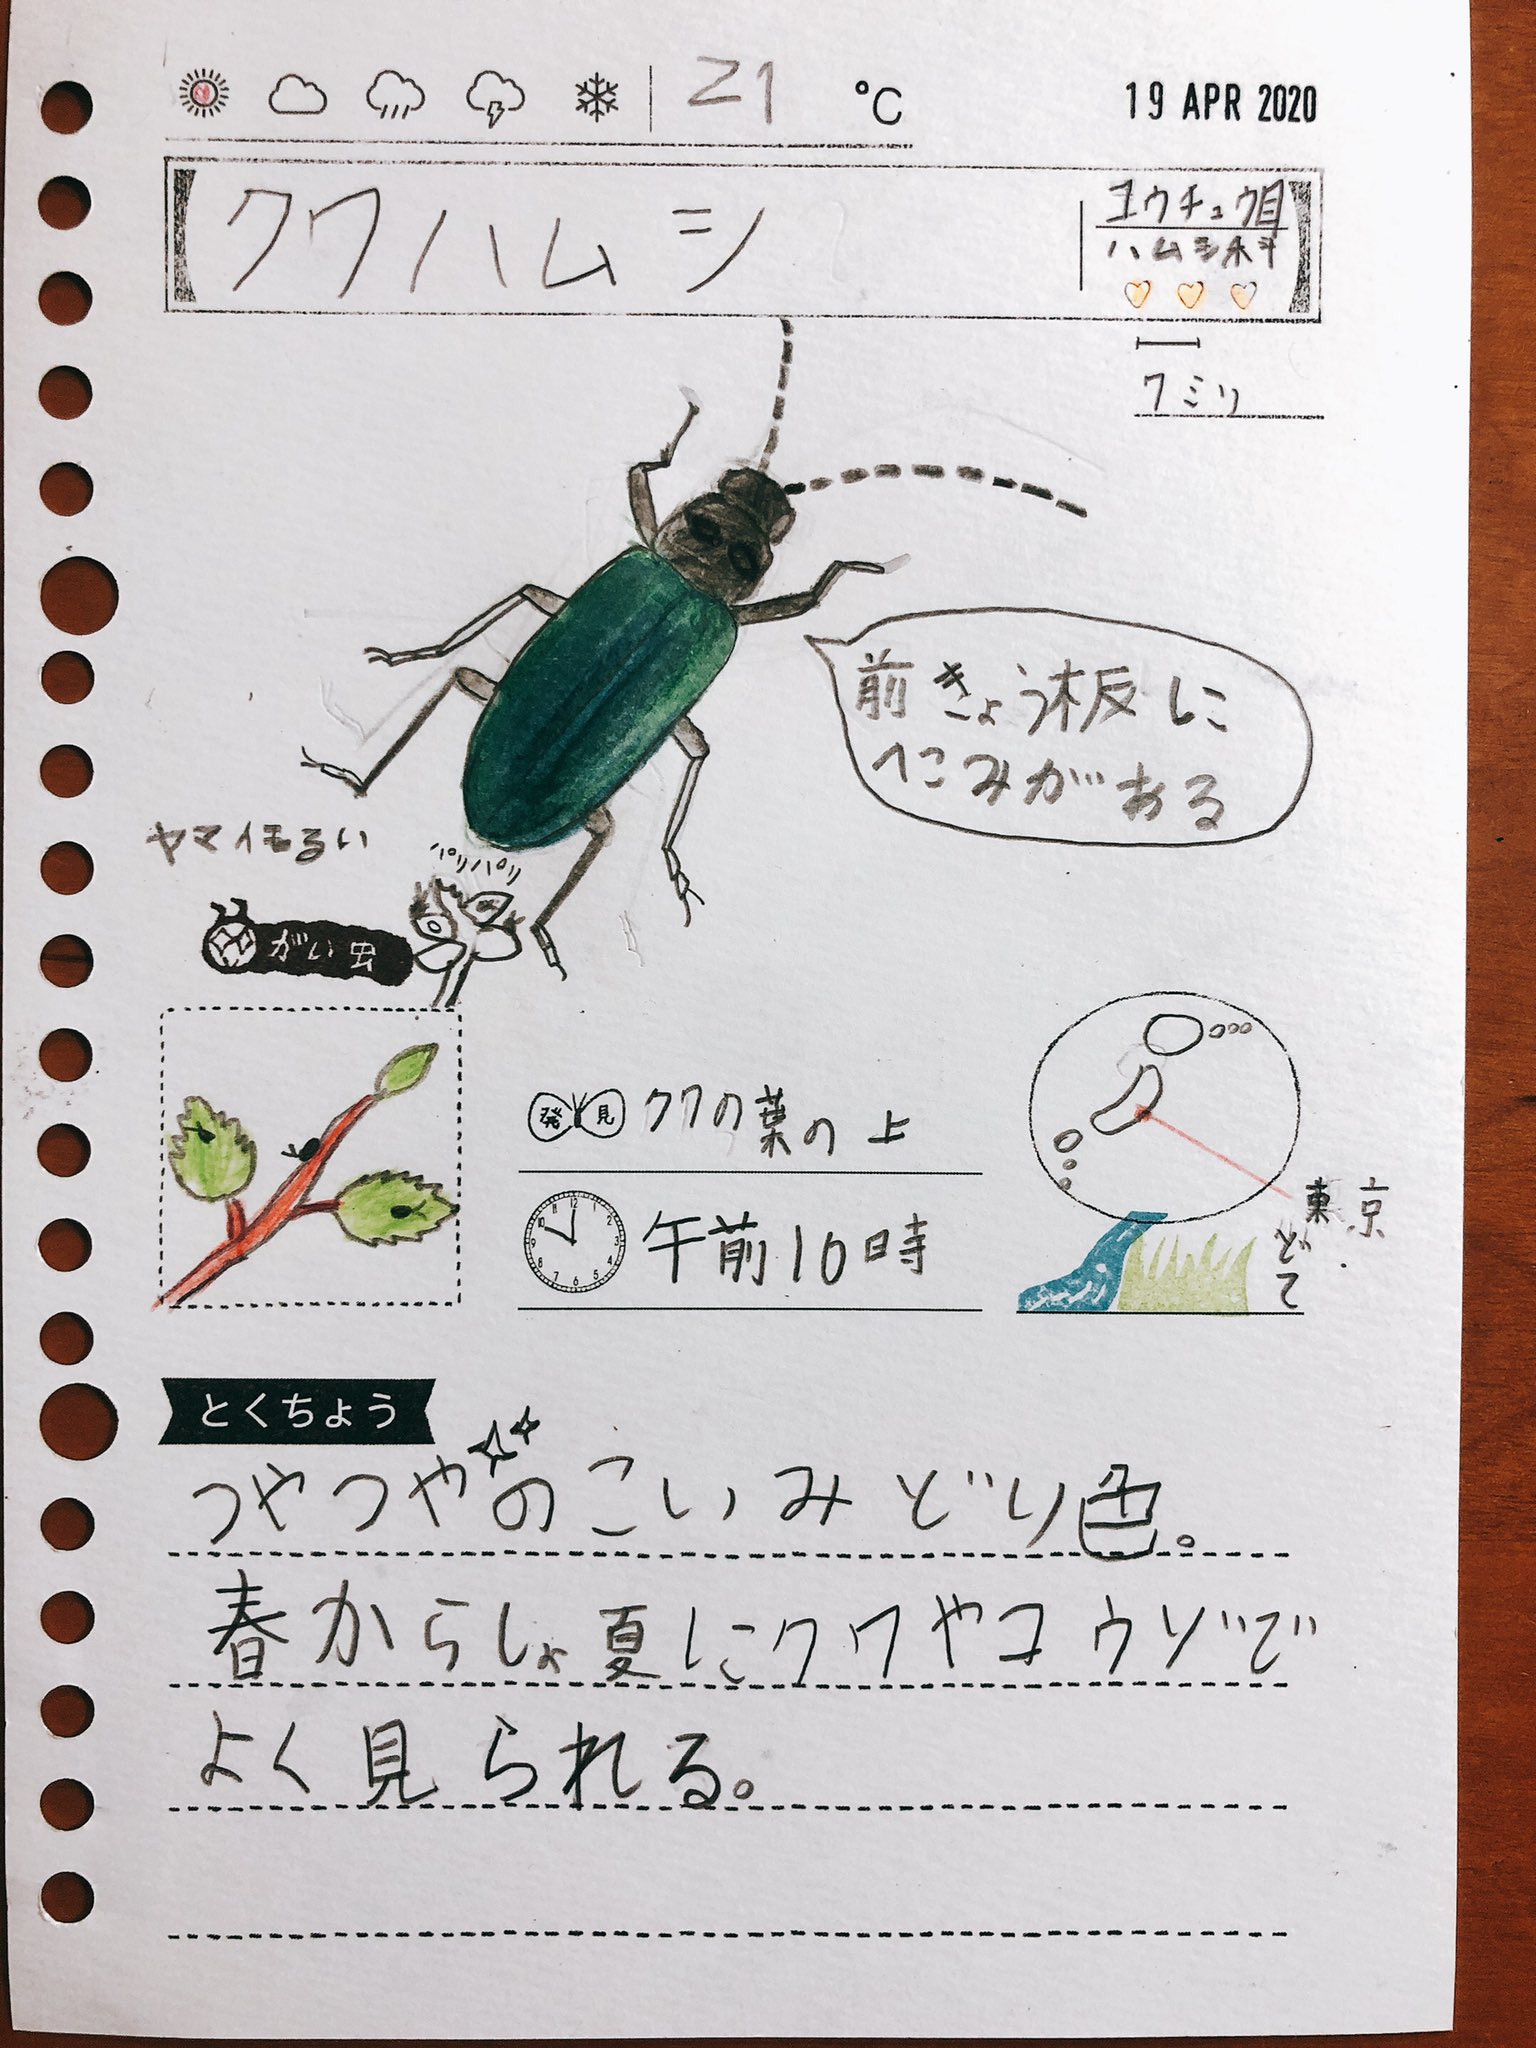 21 ℃
19 APR 2020
クワハムシ
コウチュウ目
ハムシ科
7ミリ
前きょう板に
へこみがある
ヤマイモるい
がい虫
発見 クワの葉の上
午前10時
東京
どて
とくちょう
つやつやのこいみどり色。
春からしょ夏にクワやコウゾで
よく見られる。